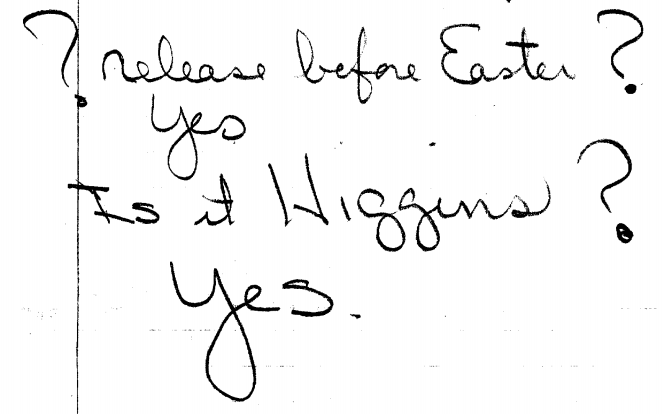 ? release before Easter ?
Yes
Is it Higgins ?
Yes.